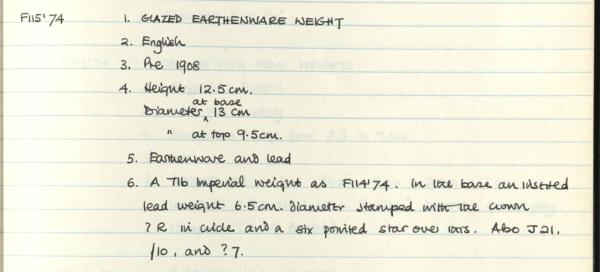 F115'74 1. GLAZED EARTHENWARE WEIGHT
2. English
3. Pre 1908
4. Height 12.5cm.
Diameter at base 13 cm
" at top 9.5cm.
5. Earthenware and lead
6. A 7lb Imperial weight as F114'74. In the base an inserted
lead weight 6.5cm. diameter stamped with the crown
? R in circle and a six pointed star over bars. Also J21,
/10, and ?7.